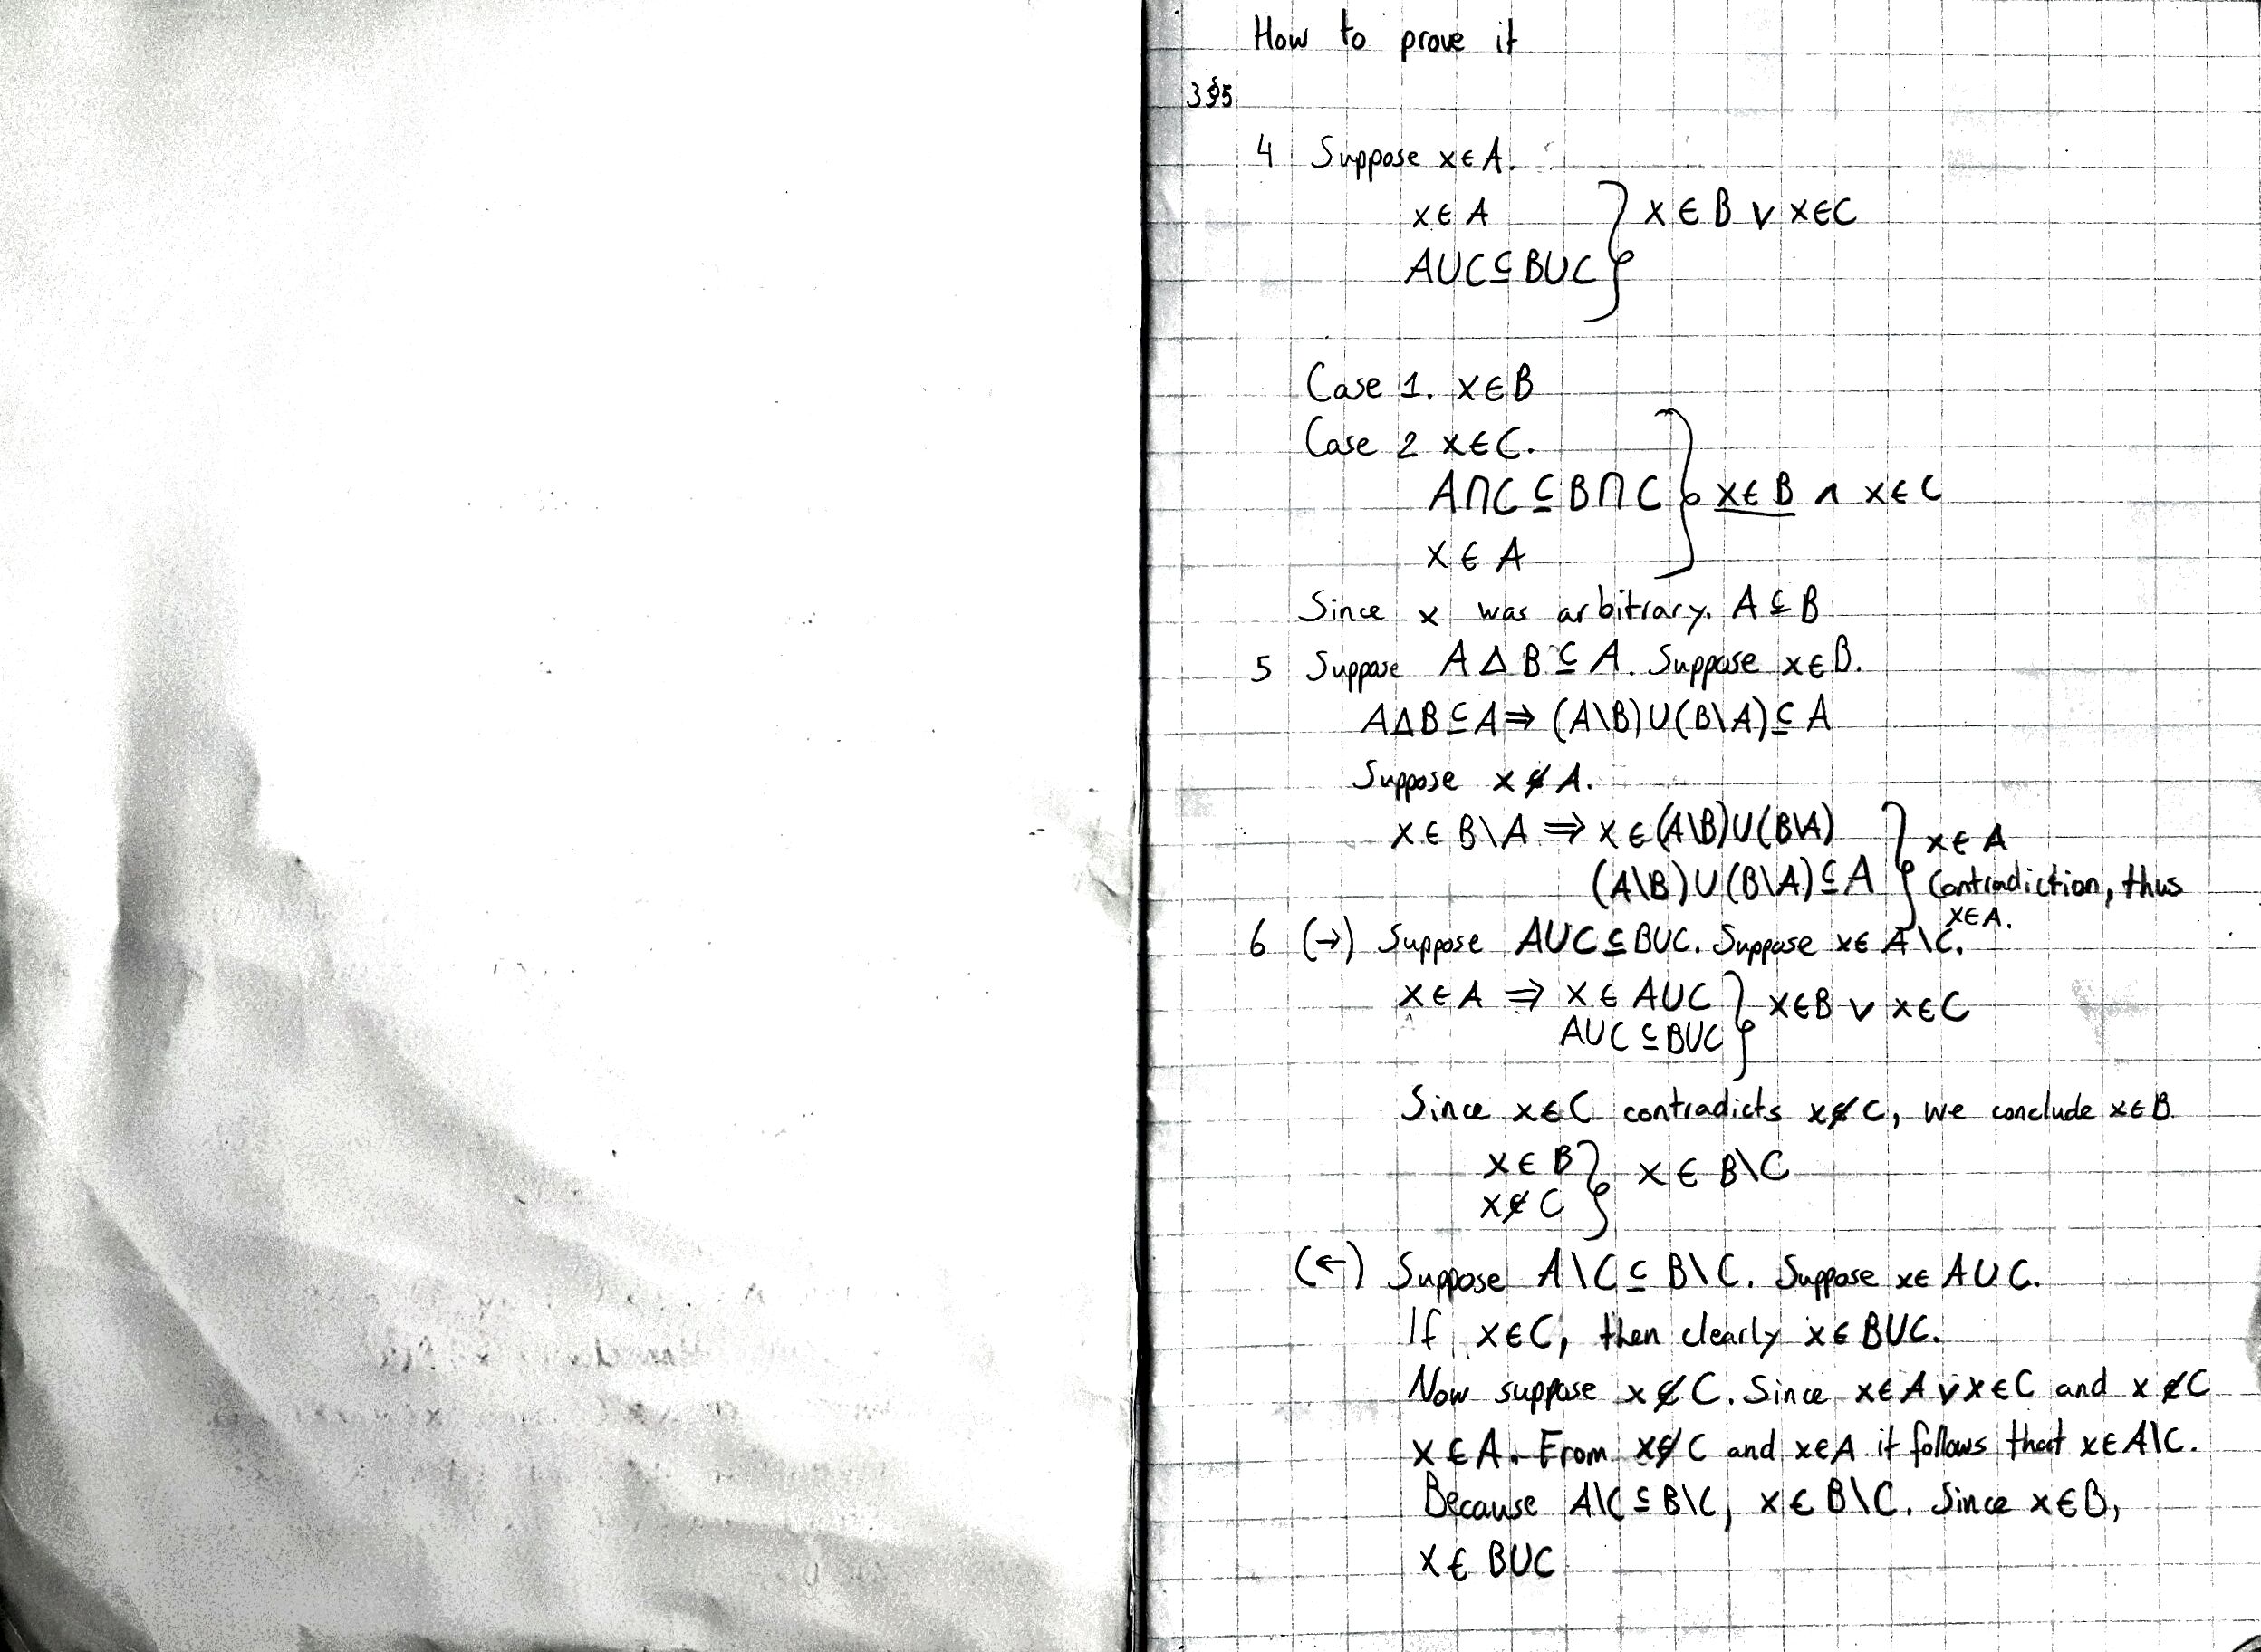 How to prove it
3§5
4 Suppose x∈A.
x∈A
A∪C⊆B∪C } x∈B ∨ x∈C
Case 1. x∈B
Case 2 x∈C.
A∩C⊆B∩C } x∈B ∧ x∈C
x∈A
Since x was arbitrary. A⊆B
5 Suppose A△B⊆A. Suppose x∈B.
A△B⊆A⇒(A\B)∪(B\A)⊆A
Suppose x∉A.
x∈B\A⇒x∈(A\B)∪(B\A) } x∈A
(A\B)∪(B\A)⊆A Contradiction, thus
x∈A.
6 (→) Suppose A∪C⊆B∪C. Suppose x∈A\C.
x∈A⇒x∈A∪C } x∈B ∨ x∈C
A∪C⊆B∪C
Since x∈C contradicts x∉C, we conclude x∈B.
x∈B } x∈B\C
x∉C
(←) Suppose A\C⊆B\C. Suppose x∈A∪C.
If x∈C, then clearly x∈B∪C.
Now suppose x∉C. Since x∈A∨x∈C and x∉C
x∈A. From x∉C and x∈A it follows that x∈A\C.
Because A\C⊆B\C, x∈B\C. Since x∈B,
x∈B∪C